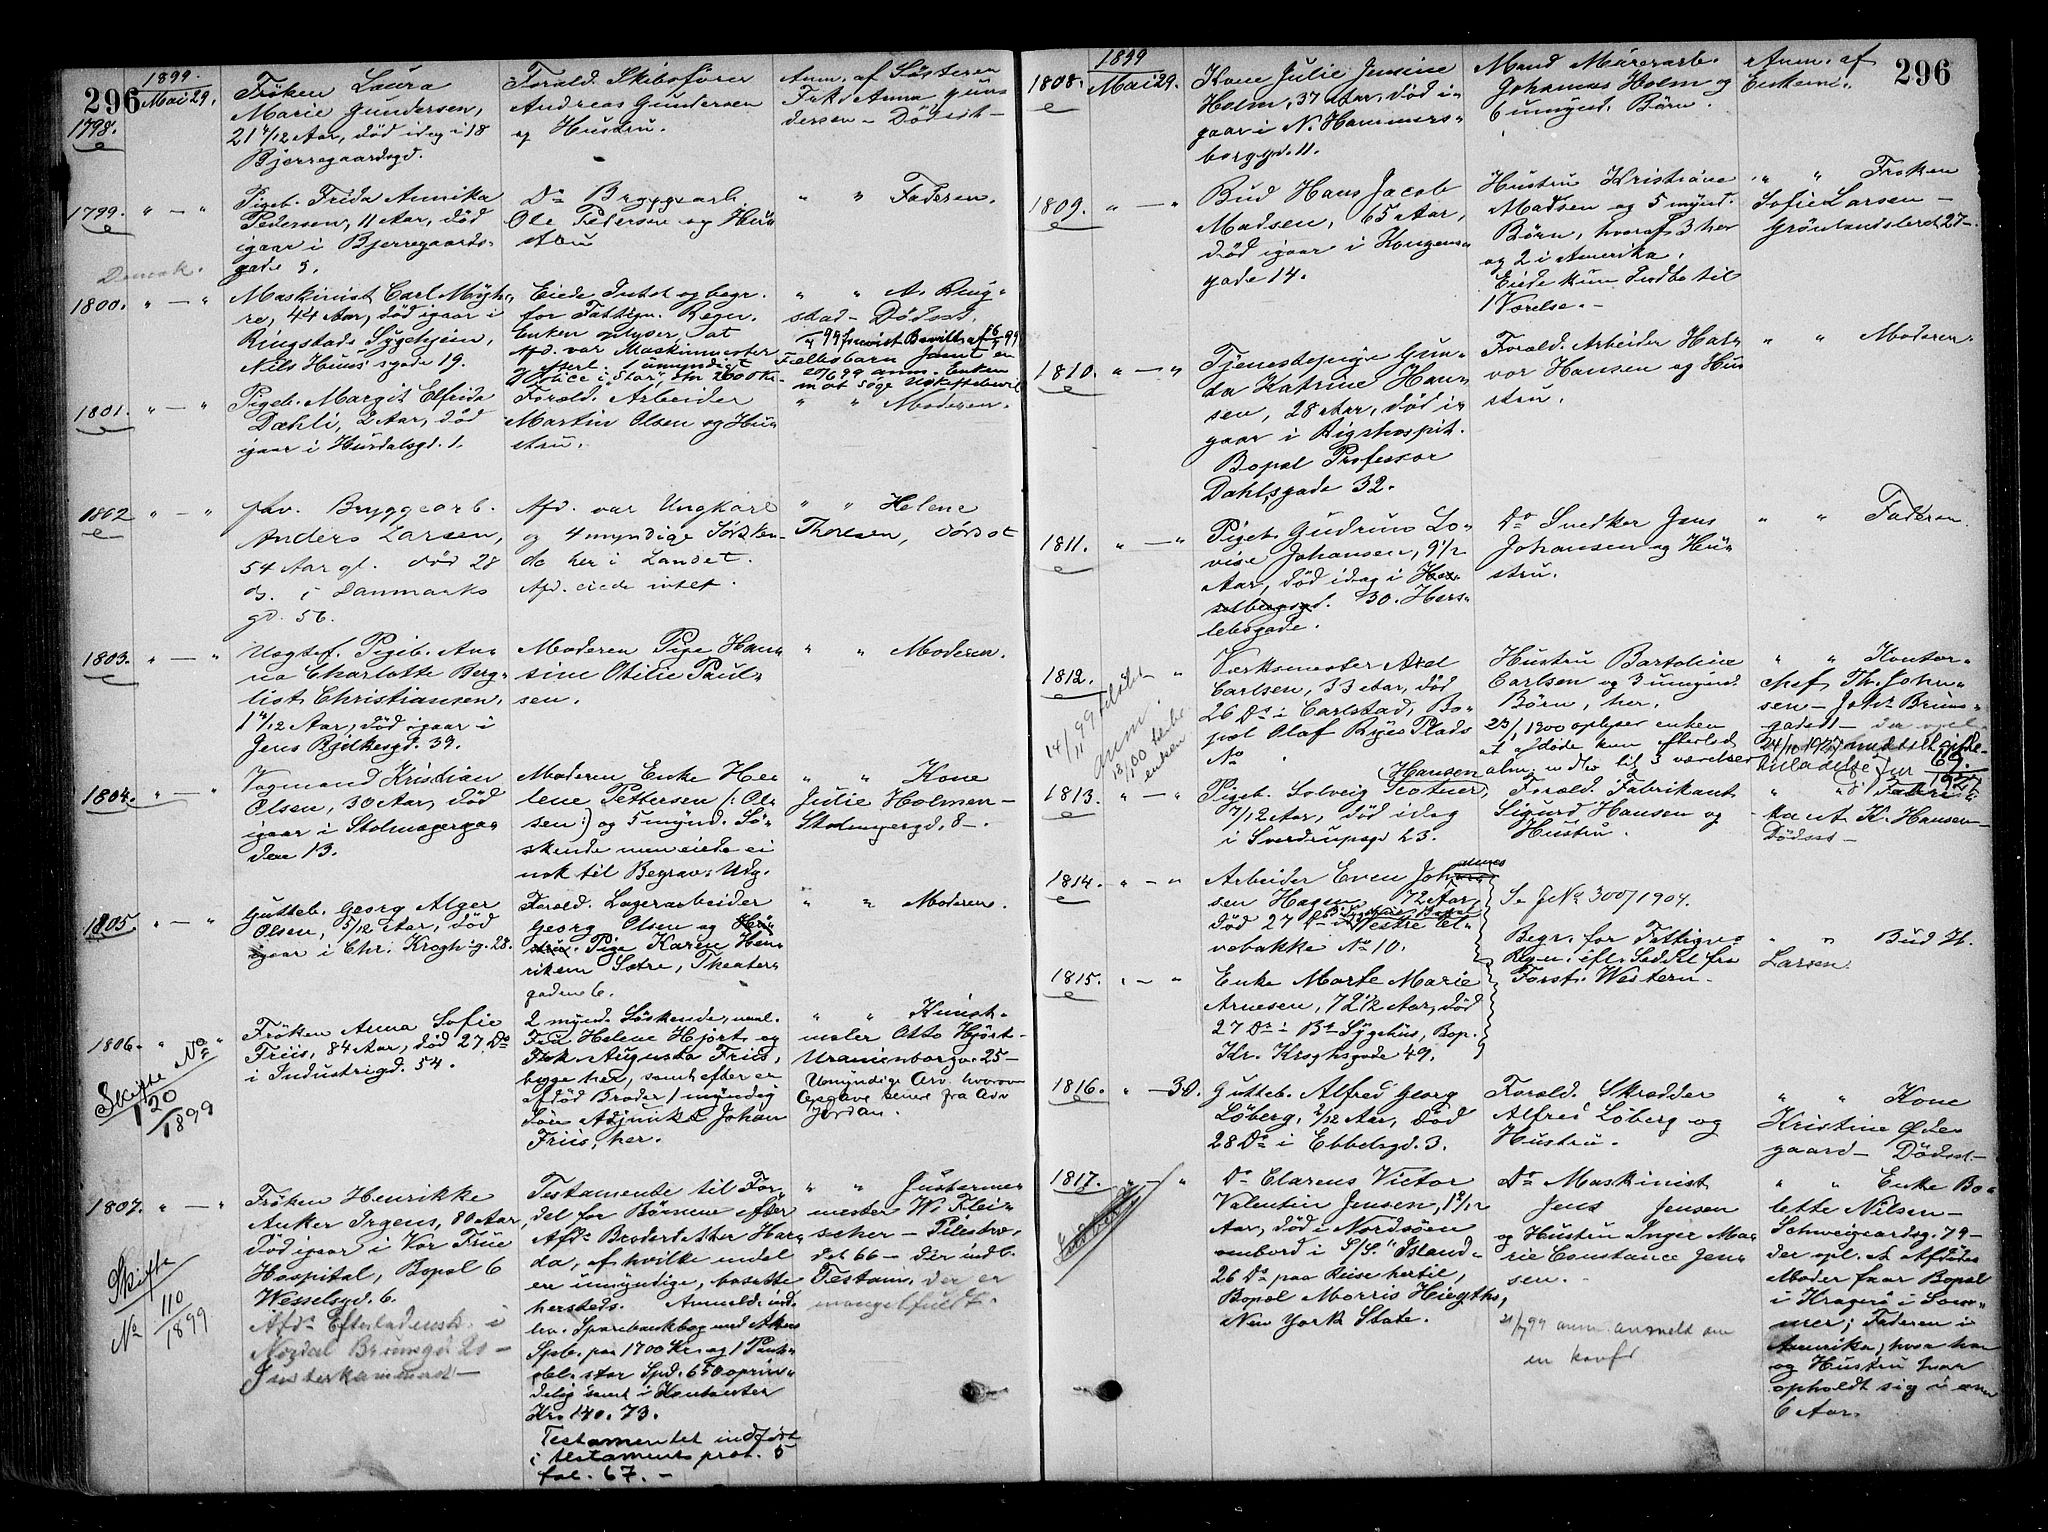 296
1899.
Mai 29.
1798.
e
Frøken Laura
Marie Gundersen,
21 4/12 Aar, død idag i 18
Bjerregaardsgd.
Foræld. Skibsfører
Andreas Gundersen
og Hustru.
Anm. af Søsteren
Frk. Anna Gun-
dersen – Dødsst –
1799.
e
" — "
Pigeb. Frida Annika
Pedersen, 11 Aar, død
igaar i Bjerregaards-
gade 5.
Do Bryggearb.
Ole Pedersen og Hu-
stru
" " Faderen.
1800.
" — "
Maskinist Carl Myh-
re, 44 Aar, død igaar i
Ringstads Sygehjem,
Nils Huus'sgade 19.
Eiede Intet og begr.
for Fattigv. Regn.
Enken oplyser, at
Afd. var Maskinmester
" " A. Ring-
stad – Dødsst.
20/6 99 anm. Enken
1801.
e
" — "
Pigeb. Margit Elfrida
Dæhli, 2 Aar, død
igaar i Hurdalsgd. 1.
Foræld. Arbeider
Martin Olsen og Hu-
stru.
" " Moderen.
1802
e
" — "
fhv. Bryggearb.
Anders Larsen,
54 Aar gl. død 28
ds. i Danmarks
gd. 56.
Afd. var Ungkarl
og 4 myndige Søsken-
de her i Landet.
Afd. eiede intet.
" " Helene
Thoresen, Dødsst
1803.
" — "
Uægtef. Pigeb. An-
na Charlotte Berg-
liot Christiansen,
1 4/12 Aar, død igaar i
Jens Bjelkesgd. 39.
Moderen Pige Han-
sine Otilie Paul-
sen.
" " Moderen.
1804.
" — "
Vognmand Kristian
Olsen, 30 Aar, død
igaar i Stolmagerga-
den 13.
Moderen Enke He-
lene Pettersen (: Ol-
sen:) og 5 mynd. Sø-
skende men eiede ei
nok til Begrav. Udg.
" " Kone
Julie Holmen –
Stolmgergd. 8 –.
1805.
" — "
Gutteb. Georg Alger
Olsen, 5/12 Aar, død
igaar i Chr. Krogh.g. 28.
Foræld. Lagerarbeider
Georg Olsen og Hu-
stru. Pige Karen Hen-
rikem Sætre, Theater-
gadene 6.
" " Moderen.
1806.
" "
Skifte No
120/1899
Frøken Anna Sofie
Friis, 84 Aar, død 27 Do
i Industrigd. 54.
2 mynd. Søskende, navl.
Fru Helene Hjort og
Frk. Augusta Friis,
begge her, samt efter en
afdød Broder 1 myndig
Søn Adjunkt Johan
Friis, her.
" " Kunst-
maler Otto Hjort –
Uranienborgv. 25 –
Umyndige Arv. hvorom
Opgave senere fra Adv
Jordan.
1807.
" — "
Skifte
No 110/1899
Frøken Henrikke
Anker Irgens, 80 Aar,
død igaar i Vor Frue
Hospital, Bopæl 6
Wesselsgd. 6.
Afd. Efterladensk. i
Nordal Brunsgd 20 –
Testamente til For-
del for Børnene efter
Afd. Broderdatter Har-
da, af hvilke endel
ere umyndige, bosatte
hersteds. Anmeld. ind-
lev. Sparebankbog med Akers
Spb. paa 1700 Kr. og 1 Pant-
obl. stor Spd. 650 oprin-
delig samt i Kontanter
Kr. 140.73.
Testamentet indført
i testamentsprot. 5
fol. 67. –
" " Justerme-
mester W. Flei-
scher – Pilestræ-
det 66 – der indl.
Testam. der er
mangelfuldt.
1899
296
1808.
e
Mai 29.
Kone Julie Jensine
Holm, 37 Aar, død i-
gaar i N. Hammers-
borggd. 11.
Mand Murerarb.
Johannes Holm og
6 umynd. Børn.
Anm. af
Enkem.
1809.
e
" — "
Bud Hans Jacob
Madsen, 65 Aar,
død igaar i Kongens-
gade 14.
Hustru Kristiane
Madsen og 5 mynd.
Børn, hvoraf 3 her
og 2 i Amerika.
Eiede kun Indbo til
1 Værelse. –
" " Frøken
Sofie Larsen –
Grønlandsleret 27 –
1810.
e
" — "
Tjenestepige Gun-
da Katrine Han-
sen, 28 Aar, død i-
gaar i Rigshospit.
Bopæl Professor
Dahlsgade 32.
Foræld. Arbeider Hal-
vor Hansen og Hu-
stru.
" " Moderen.
1811.
e
" — "
Pigeb. Gudrun Lo-
vise Johansen, 9 1/2
Aar, død idag i Has-
selbergsgd. 30. Hers-
lebsgade.
Do Snedker Jens
Johansen og Hu-
stru.
" " Faderen.
1812.
"
Værksmester Axel
Carlsen, 33 Aar, død
26 Ds i Carlstad, Bo-
pæl Olaf Ryes Plads
No
Hustru Bartoline
Carlsen og 3 umynd.
Børn, her.
23/1 1900 oplyser enken
at afdøde kun efterlod
alm. indbo til 3 værelser
" " Kontor-
chef Th. John-
sen – Joh. Bruns-
gade 1 –
1813.
" — "
Hansen
Pigeb. Solveig Rotner,
7/12 Aar, død idag
i Sverdrupsgd 23.
Foræld. Fabrikant
Sigurd Hansen og
Hustru.
K. Hansen –
Dødsst –
1814.
e
" — "
Arbeider Even Johannes-
sen Hagen, 72 Aar,
død 27 Ds i Vestre El-
vebakke No 10.
Se J No 300/1904.
Begr. for Fattigv.
Regn. ifl. Seddel fra
Forst. Western.
" " Bud H.
Larsen.
1815.
e
" — "
Enke Marte Marie
Arnesen, 72 1/2 Aar, død
27 Ds i By. Sygehus, Bop.
Kr. Kroghsgade 49.
1816.
" — 30.
Gutteb. Alfred Georg
Løberg, 2/12 Aar, død
28 Ds i Ebbelsgd. 3.
Foræld. Skrædder
Alfred Løberg og
Hustru.
" " Kone
Kristine Øde-
gaard – Dødsst –
1817.
" — "
Do Clarens Victor
Valentin Jensen, 1 9/12
Aar, død i Nordsøen
ombord i S/S. "Island"
26 Ds. paa Reise hertil,
Bopæl Morris Hieghts,
New York State.
Do Maskinist
Jens Jensen
og Hustru Inger Ma-
rie Constance Jen-
sen.
" " Enke Bo-
lette Nilsen –
Schweigaardsg. 79 –
der opl. at Afdødes
Moder faar Bopæl
i Kragerø i Som-
mer; Faderen i
Amerika, hvor han
og Hustru har
opholdt sig i om
6 Aar.